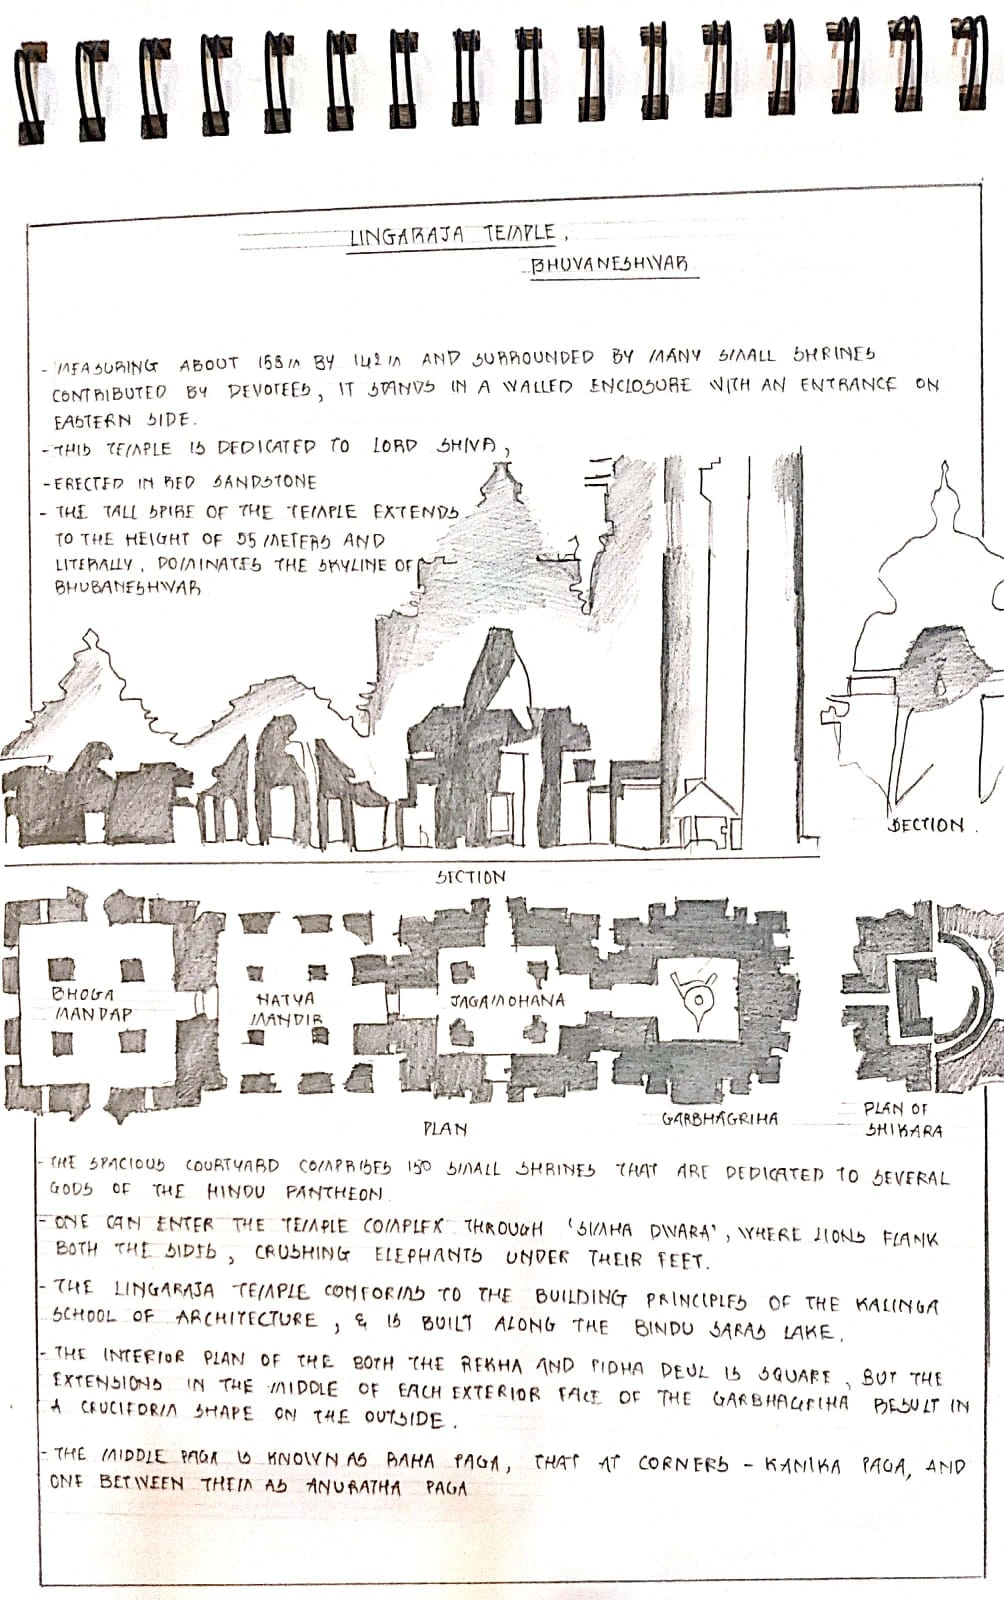 LINGARAJA TEMPLE,
BHUVANESHWAR
- MEASURING ABOUT 158m BY 142m AND SURROUNDED BY MANY SMALL SHRINES
CONTRIBUTED BY DEVOTEES, IT STANDS IN A WALLED ENCLOSURE WITH AN ENTRANCE ON
EASTERN SIDE.
- THIS TEMPLE IS DEDICATED TO LORD SHIVA,
- ERECTED IN RED SANDSTONE
- THE TALL SPIRE OF THE TEMPLE EXTENDS
TO THE HEIGHT OF 55 METERS AND
LITERALLY, DOMINATES THE SKYLINE OF
BHUBANESHWAR
SECTION.
SECTION
BHOGA
MANDAP
NATYA
MANDIR
JAGAMOHANA
GARBHAGRIHA
PLAN OF
SHIKARA
PLAN
- THE SPACIOUS COURTYARD COMPRISES 150 SMALL SHRINES THAT ARE DEDICATED TO SEVERAL
GODS OF THE HINDU PANTHEON.
- ONE CAN ENTER THE TEMPLE COMPLEX THROUGH 'SIMHA DWARA', WHERE LIONS FLANK
BOTH THE SIDES, CRUSHING ELEPHANTS UNDER THEIR FEET.
- THE LINGARAJA TEMPLE CONFORMS TO THE BUILDING PRINCIPLES OF THE KALINGA
SCHOOL OF ARCHITECTURE, & IS BUILT ALONG THE BINDU SARAS LAKE.
- THE INTERIOR PLAN OF THE BOTH THE REKHA AND PIDHA DEUL IS SQUARE, BUT THE
EXTENSIONS IN THE MIDDLE OF EACH EXTERIOR FACE OF THE GARBHAGRIHA RESULT IN
A CRUCIFORM SHAPE ON THE OUTSIDE.
- THE MIDDLE PAGA IS KNOWN AS RAHA PAGA, THAT AT CORNERS - KANIKA PAGA, AND
ONE BETWEEN THEM AS ANURATHA PAGA